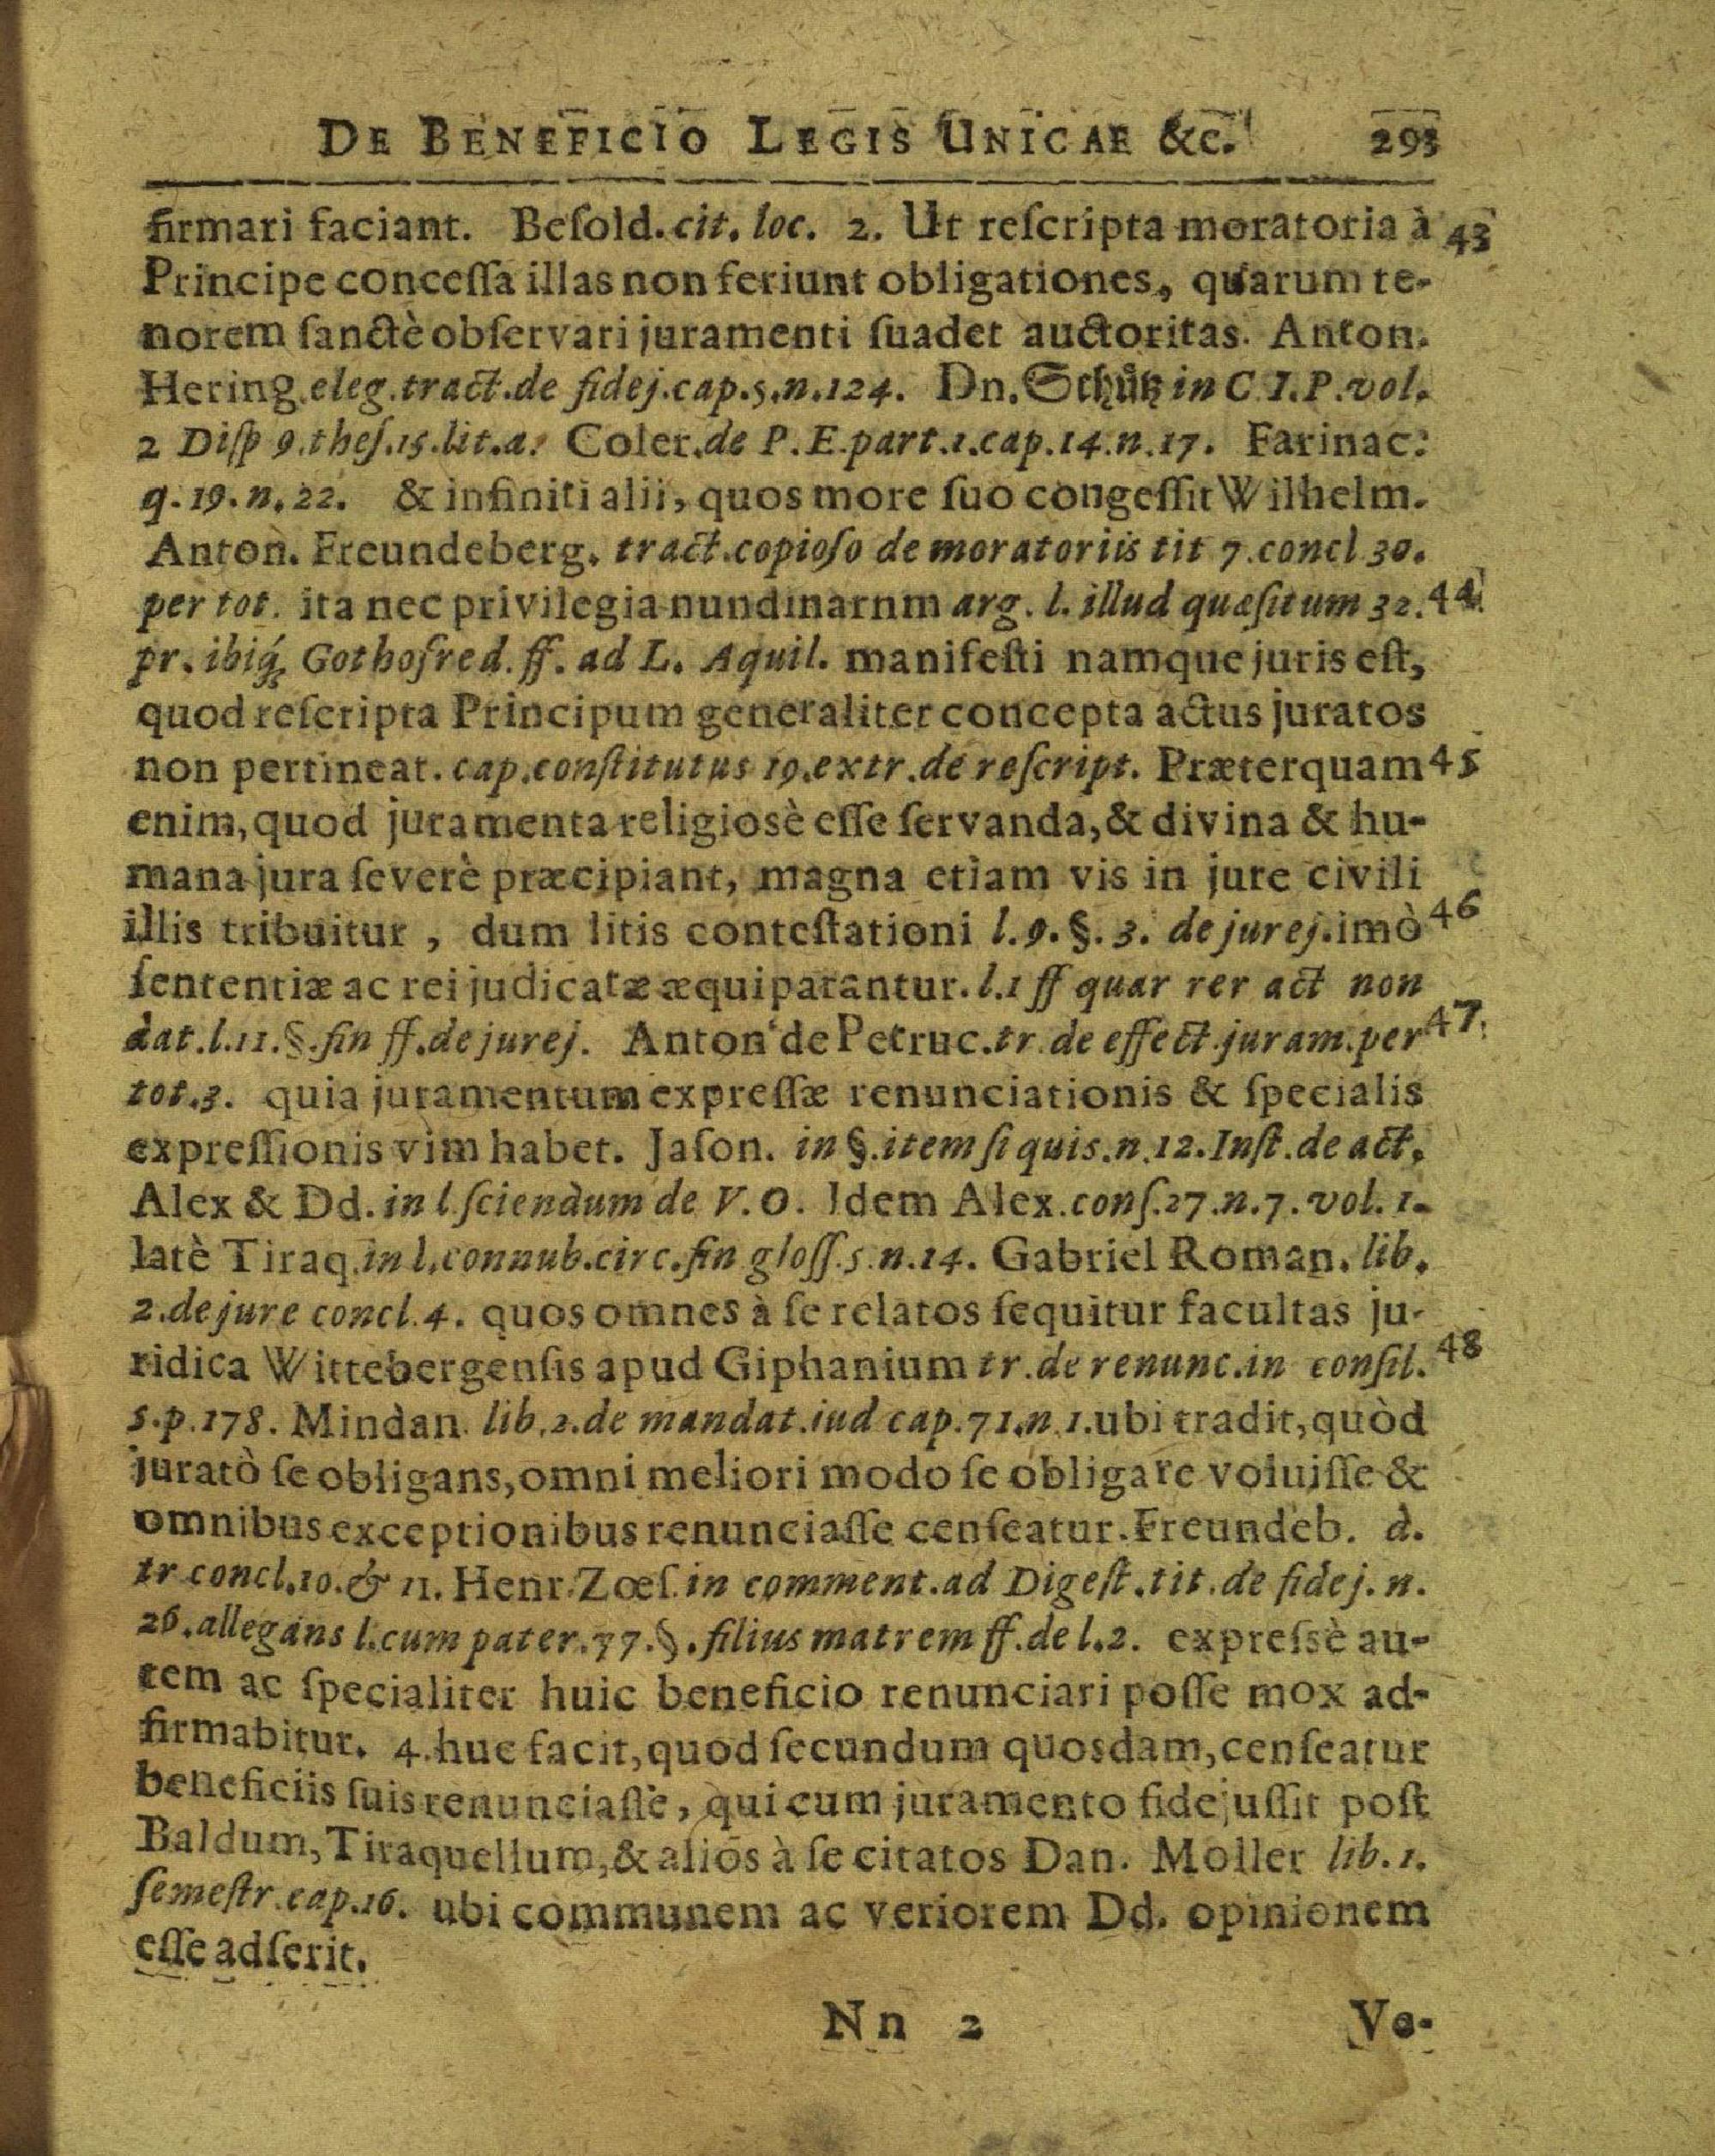 DE BENEFICIO LEGIS UNICAE &c. 293
firmari faciant. Beſold. cit. loc. 2. Ut reſcripta moratoria à 43
Principe conceſſa illas non feriunt obligationes, quarum te-
norem ſanctè obſervari juramenti ſuadet auctoritas. Anton.
Hering. eleg. tract. de fidej. cap. 5. n. 124. Dn. Schütz in C. I. P. vol.
2 Diſp 9. theſ. 15. lit. a. Coler. de P. E. part. 1. cap. 14. n. 17. Farinac:
q. 19. n. 22. & infiniti alii, quos more ſuo congeſſit Wilhelm.
Anton. Freundeberg. tract. copioſo de moratoriis tit 7. concl 30.
per tot. ita nec privilegia nundinarnm arg. l. illud quæſitum 32. 44
pr. ibiq́ꝫ Gothofred. ff. ad L. Aquil. manifeſti namque juris eſt,
quod reſcripta Principum generaliter concepta actus juratos
non pertineat. cap. conſtitutus 19. extr. de reſcript. Præterquam 45
enim, quod juramenta religiosè eſſe ſervanda, & divina & hu-
mana jura ſeverè præcipiant, magna etiam vis in jure civili
illis tribuitur, dum litis conteſtationi l. 9. §. 3. de jurej. imò 46
ſententiæ ac rei judicatæ æquiparantur. l. 1 ff quar rer act non
dat. l. 11. §. fin ff. de jurej. Anton de Petruc. tr. de effect. juram. per 47
tot. 3. quia juramentum expreſſæ renunciationis & ſpecialis
expreſſionis vim habet. Jaſon. in §. item ſi quis. n. 12. Inſt. de act.
Alex & Dd. in l ſciendum de V. O. Idem Alex. conſ. 27. n. 7. vol. 1.
latè Tiraq. in l. connub. circ. fin gloſſ. 5. n. 14. Gabriel Roman. lib.
2. de jure concl. 4. quos omnes à ſe relatos ſequitur facultas ju-
ridica Wittebergenſis apud Giphanium tr. de renunc. in conſil. 48
5. p. 178. Mindan. lib. 2. de mandat. iud cap. 71. n. 1. ubi tradit, quòd
juratò ſe obligans, omni meliori modo ſe obligare voluiſſe &
omnibus exceptionibus renunciaſſe cenſeatur. Freundeb. d.
tr concl. 10. & 11. Henr. Zœſ. in comment. ad Digeſt. tit. de fidej. n.
26. allegans l. cum pater. 77. §. filius matrem ff. de l. 2. expreſsè au-
tem ac ſpecialiter huic beneficio renunciari poſſe mox ad-
firmabitur. 4. huc facit, quod ſecundum quosdam, cenſeatur
beneficiis ſuis renunciaſſe, qui cum juramento fidejuſſit poſt
Baldum, Tiraquellum, & alios à ſe citatos Dan. Moller lib. 1.
ſemeſtr. cap. 16. ubi communem ac veriorem Dd. opinionem
eſſe adſerit.
Nn 2 Ve-